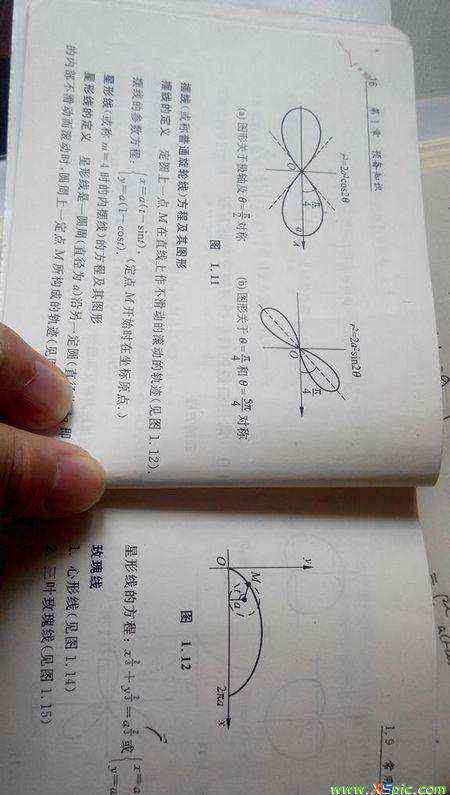 16 第1章 预备知识
r²=2a²cos2θ
π/4
O
x
r²=2a²sin2θ
π/4
O
(a) 图形关于极轴及 θ=π/2 对称
(b) 图形关于 θ=π/4 和 θ=5π/4 对称
图 1.11
摆线(或称普通旋轮线)方程及其图形
摆线的定义 定圆上一点 M 在直线上作不滑动的滚动的轨迹(见图 1.12).
摆线的参数方程: { x=a(t-sint), y=a(1-cost). (定点 M 开始时在坐标原点.)
星形线(或称 m=4 时的内摆线)的方程及其图形
星形线的定义 星形线是一圆周(直径为 a)沿另一定圆
的内部不滑动而滚动时,圆周上一定点 M 所构成的轨迹(见
1.9 常用
y
M
t
a
O
2πa
x
图 1.12
星形线的方程: x^(2/3)+y^(2/3)=a^(2/3) 或 { x=a y=a
玫瑰线
1. 心形线(见图 1.14)
2. 三叶玫瑰线(见图 1.15)
www.X5pic.com